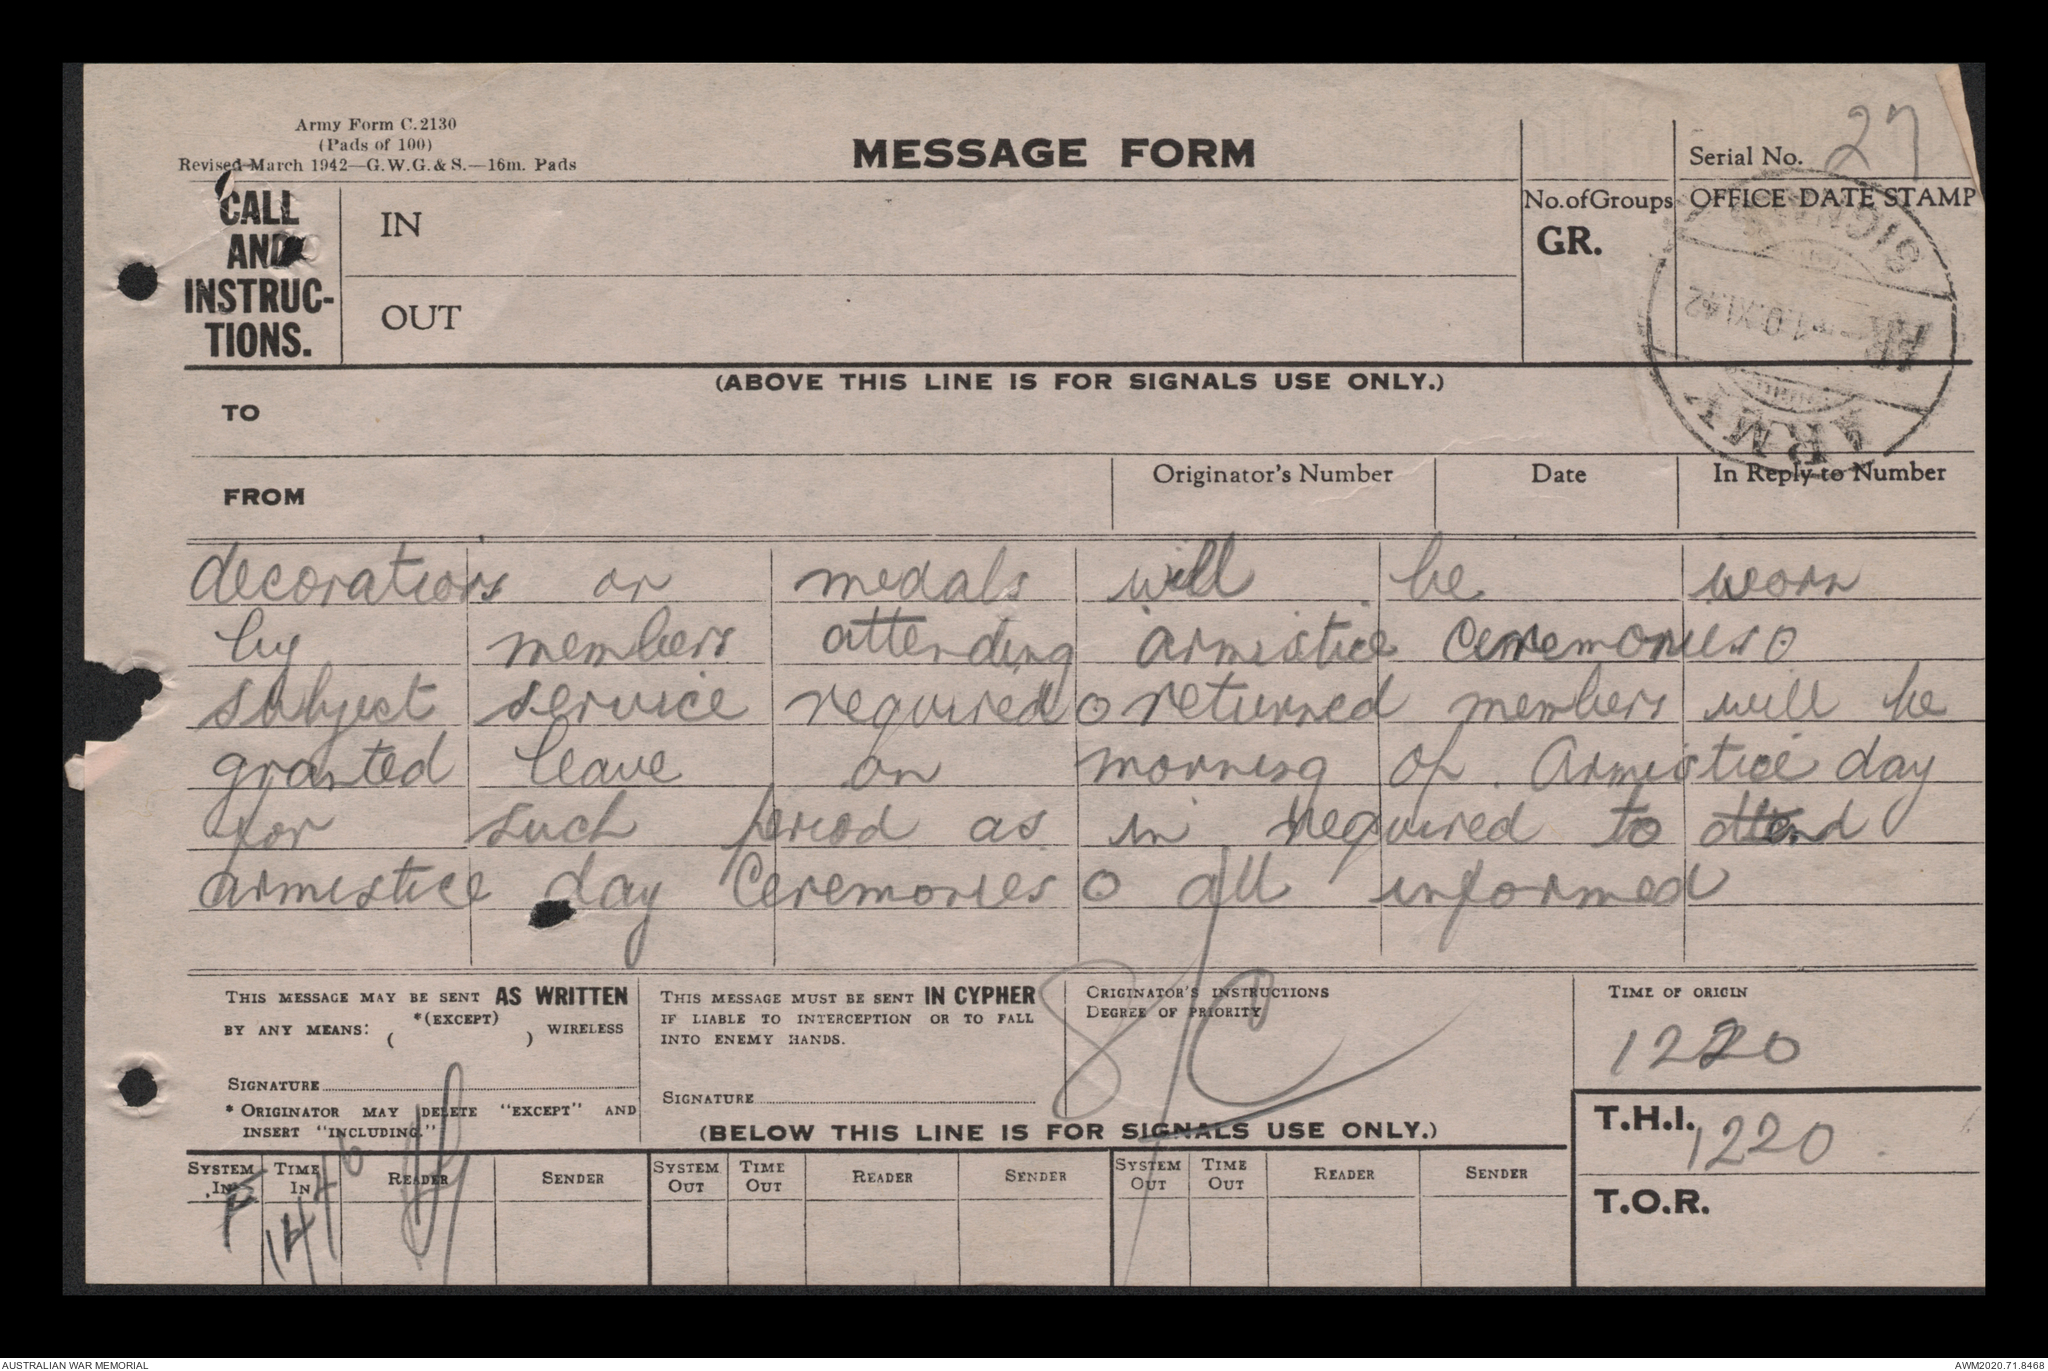 Army Form C.2130
(Pads of 100)
Revised March 1942—G.W.G. & S.—16m. Pads
MESSAGE FORM
Serial No. 27
CALL
AND
INSTRUC-
TIONS.
IN
OUT
No. of Groups
GR.
OFFICE DATE STAMP
SIGNALS
10 XI 42
ARMY
(ABOVE THIS LINE IS FOR SIGNALS USE ONLY.)
TO
FROM
Originator's Number
Date
In Reply to Number
decorations or medals will be worn
by members attending armistice ceremonies O
subject service required O returned members will be
granted leave on morning of Armistice day
for such period as in required to attend
armistice day Ceremonies O all informed
THIS MESSAGE MAY BE SENT AS WRITTEN
BY ANY MEANS: *(EXCEPT) ( ) WIRELESS
SIGNATURE
* ORIGINATOR MAY DELETE "EXCEPT" AND
INSERT "INCLUDING."
THIS MESSAGE MUST BE SENT IN CYPHER
IF LIABLE TO INTERCEPTION OR TO FALL
INTO ENEMY HANDS.
SIGNATURE
ORIGINATOR'S INSTRUCTIONS
DEGREE OF PRIORITY
TIME OF ORIGIN
1220
(BELOW THIS LINE IS FOR SIGNALS USE ONLY.)
T.H.I. 1220
T.O.R.
SYSTEM IN TIME IN READER SENDER SYSTEM OUT TIME OUT READER SENDER SYSTEM OUT TIME OUT READER SENDER
AUSTRALIAN WAR MEMORIAL
AWM2020.71.8468